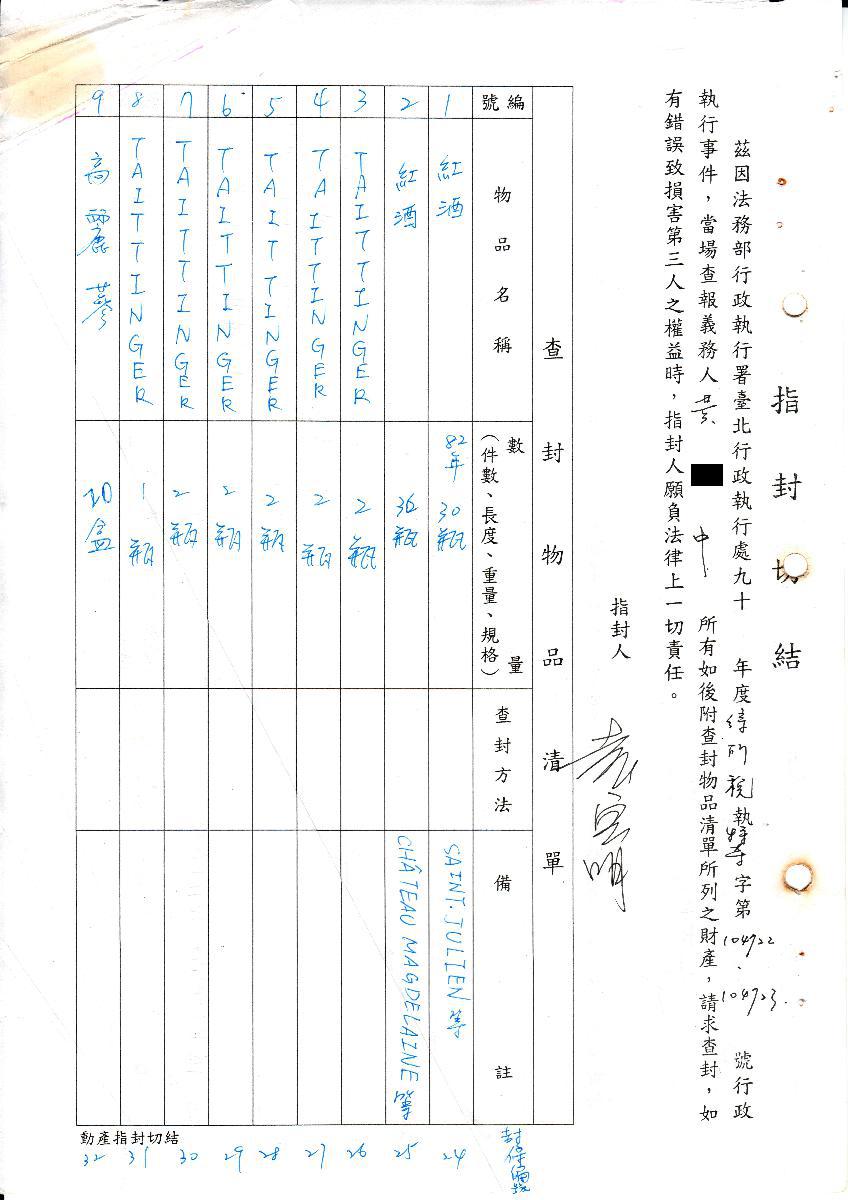 指封切結
茲因法務部行政執行署臺北行政執行處九十 年度綜所稅執特專字第104922、104923.號行政
執行事件，當場查報義務人黃 中 所有如後附查封物品清單所列之財產，請求查封，如
有錯誤致損害第三人之權益時，指封人願負法律上一切責任。
指封人
查封物品清單
編號 物品名稱 數量（件數、長度、重量、規格） 查封方法 備註 封條編號
1 紅酒 82年 30瓶 SAINT.JULIEN等 24
2 紅酒 36瓶 CHÂTEAU MAGDELAINE等 25
3 TAITTINGER 2瓶 26
4 TAITTINGER 2瓶 27
5 TAITTINGER 2瓶 28
6 TAITTINGER 2瓶 29
7 TAITTINGER 2瓶 30
8 TAITTINGER 1瓶 31
9 高麗蔘 20盒 32
動產指封切結